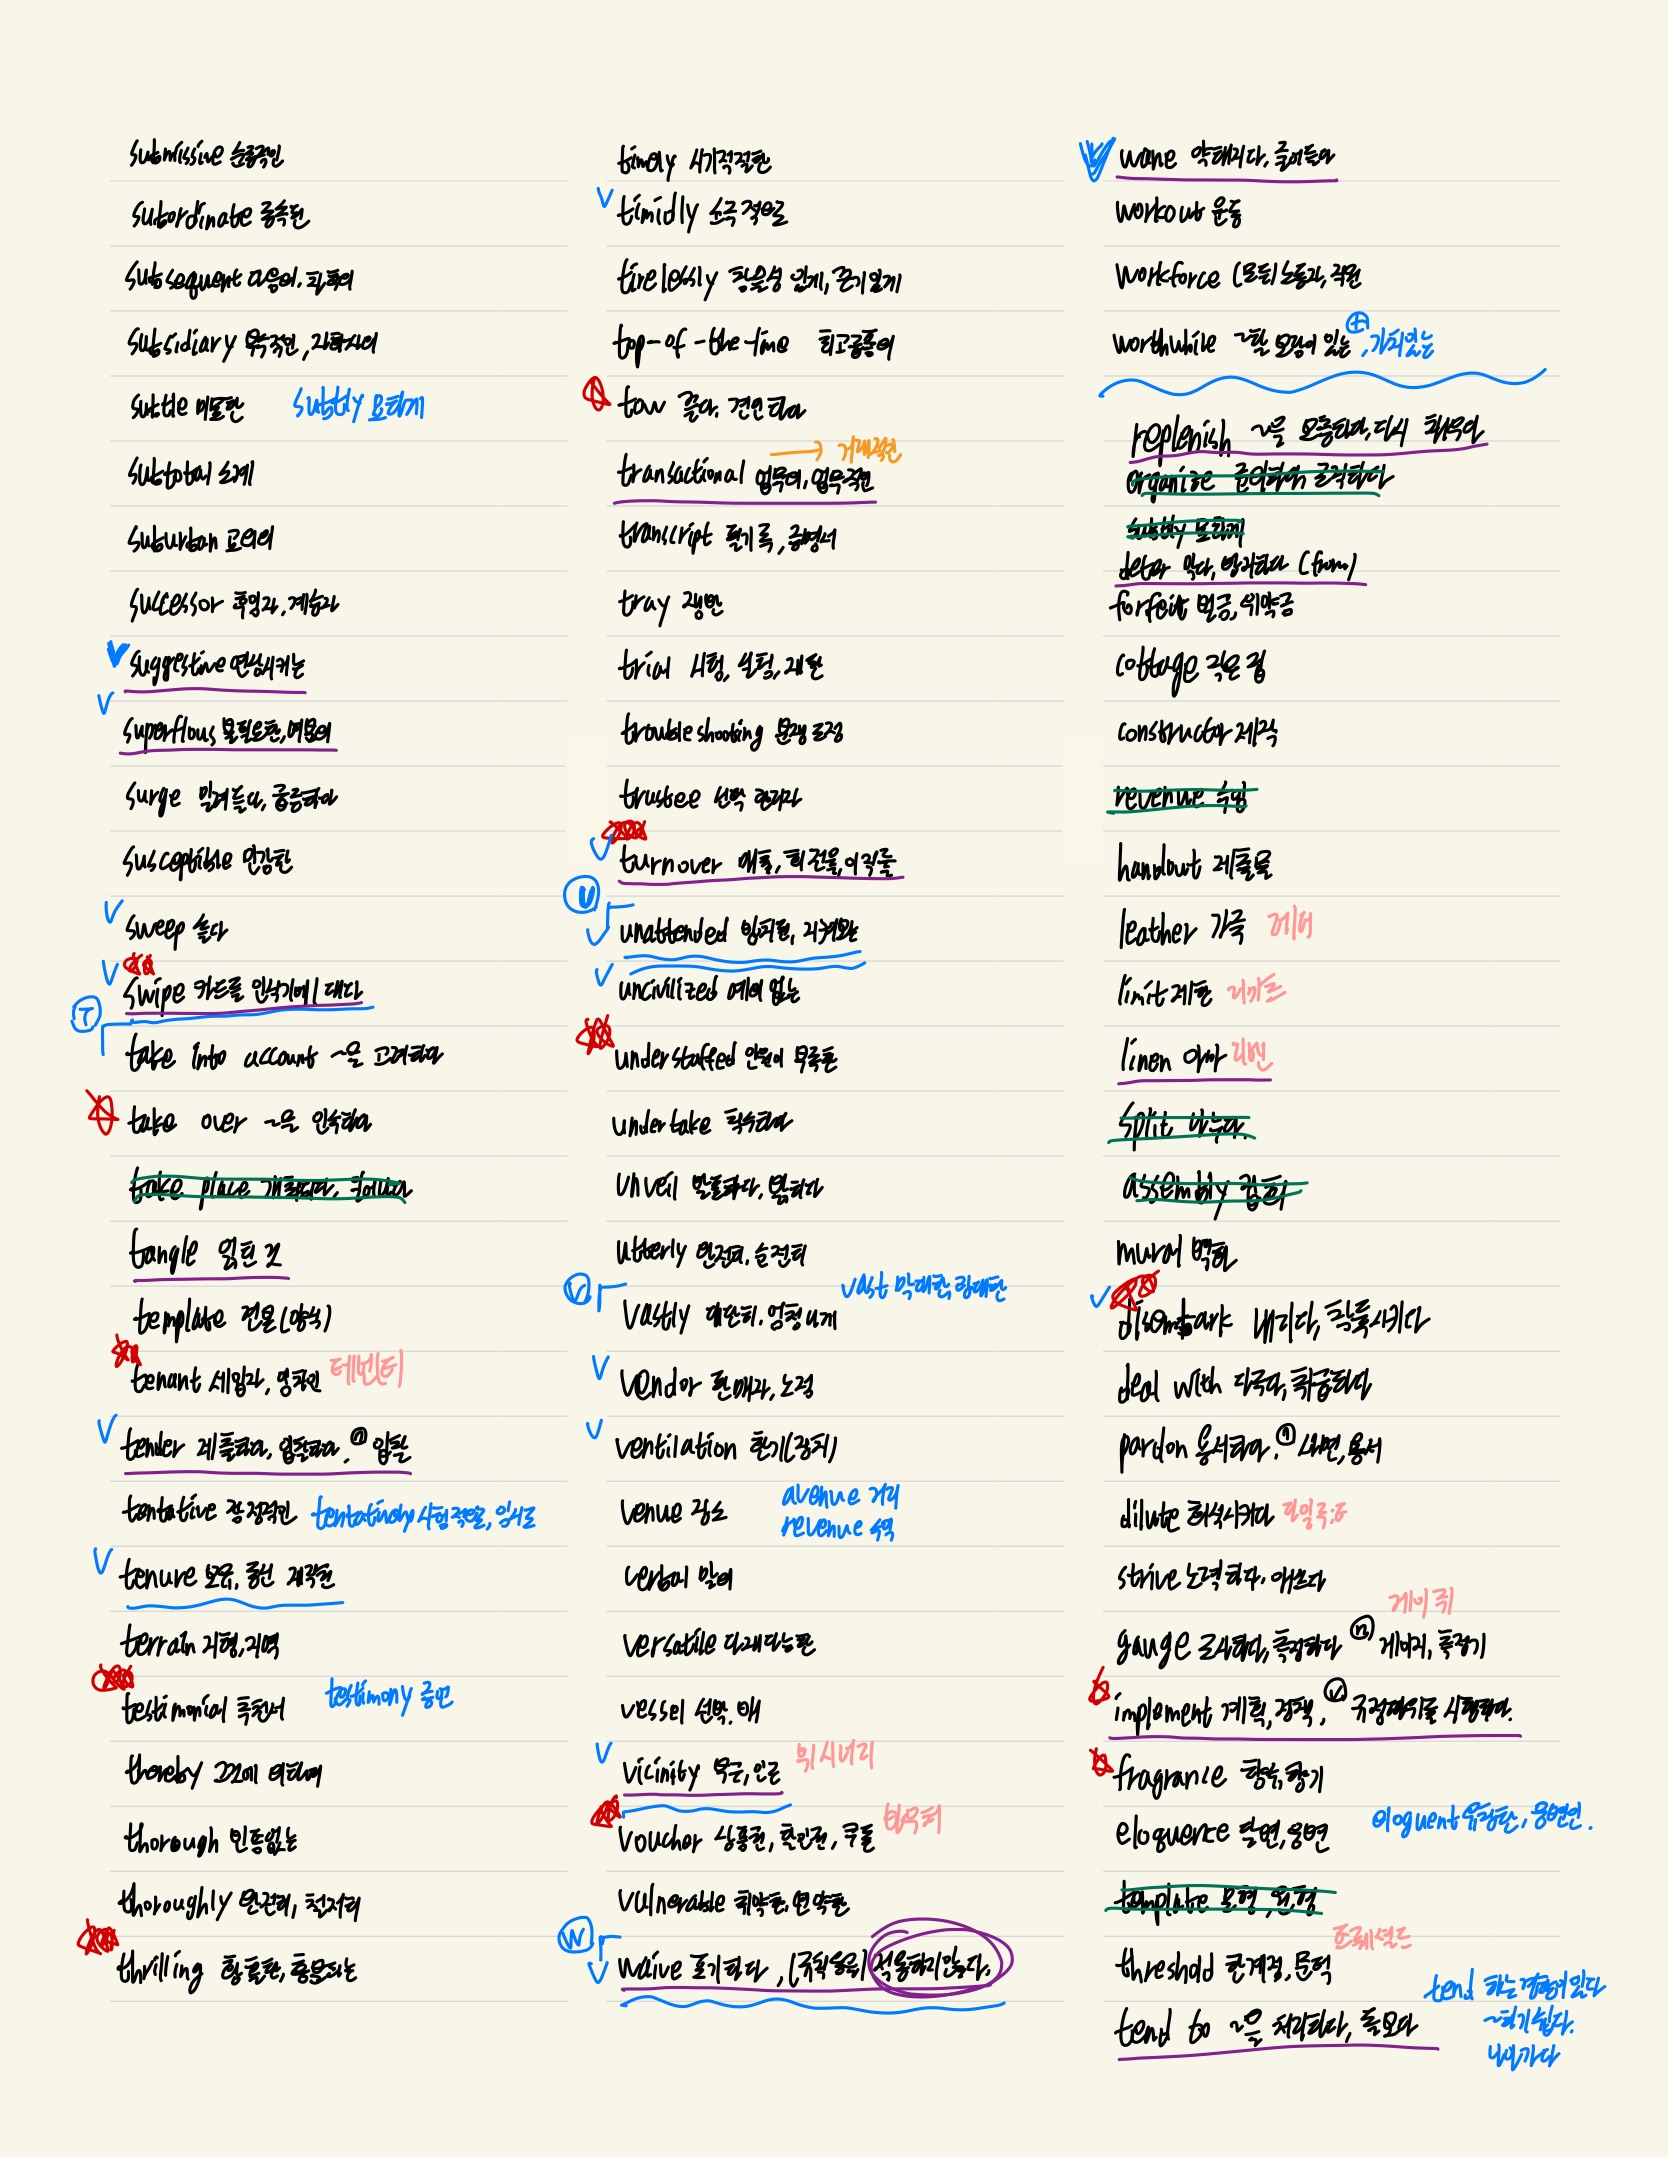 submissive 순종적인
subordinate 종속된
subsequent 다음의, 차후의
subsidiary 부수적인, 자회사의
subtle 미묘한 subtly 묘하게
subtotal 소계
suburban 교외의
successor 후임자, 계승자
suggestive 연상시키는
superflous 불필요한, 여분의
surge 밀려들다, 급증하다
susceptible 민감한
sweep 쓸다
swipe 카드를 인식기에 대다
T
take into account ~을 고려하다
take over ~을 인수하다
take place 개최되다, 일어나다
tangle 얽힌 것
template 견본(양식)
tenant 세입자, 임차인 테넌티
tender 제출하다, 입찰하다, n 입찰
tentative 잠정적인 tentatively 시험적으로, 임시로
tenure 보유, 종신 재직권
terrain 지형, 지역
testimonial 추천서 testimony 증언
thereby 그것에 의하여
thorough 빈틈없는
thoroughly 완전히, 철저히
thrilling 황홀한, 흥분되는
timely 시기적절한
timidly 소극적으로
tirelessly 지칠줄 모르게, 끈기있게
top-of-the-line 최고급품의
tow 끌다, 견인하다
→ 거래적인
transactional 업무의, 업무적인
transcript 필기록, 증명서
tray 쟁반
trial 시험, 실험, 재판
troubleshooting 분쟁 조정
trustee 신탁 관리자
turnover 매출, 회전율, 이직률
U
unattended 방치된, 지켜보는
uncivilized 예의 없는
understaffed 인원이 부족한
undertake 착수하다
unveil 발표하다, 밝히다
utterly 완전히, 순전히
V vast 막대한, 광대한
vastly 대단히, 엄청나게
vendor 판매자, 노점
ventilation 환기(장치)
venue 장소 avenue 거리
revenue 수익
verbal 말의
versatile 다재다능한
vessel 선박, 배
vicinity 부근, 인근 뷔시너리
voucher 상품권, 할인권, 쿠폰 바우처
vulnerable 취약한, 연약한
W
waive 포기하다, (규칙 등을) 적용하지 않는다.
wane 약해지다, 줄어들다
workout 운동
workforce (모든) 노동자, 직원
worthwhile ~할 보람이 있는, 가치있는
replenish ~을 보충하다, 다시 채우다
organize 준비하다, 조직하다
subtly 묘하게
deter 막다, 방지하다 (from)
forfeit 벌금, 위약금
cottage 작은 집
constructor 제작
revenue 수입
handout 제출물
leather 가죽 레더
limit 제한 리미트
linen 아마 리넨
split 나누다.
assembly 집회
mural 벽화
disembark 내리다, 착륙시키다
deal with 다루다, 취급하다
pardon 용서하다. n 사면, 용서
dilute 희석시키다 다일루트
strive 노력하다, 애쓰다
게이쥐
gauge 조사하다, 측정하다 n 게이지, 측정기
implement 계획, 정책, v 규정따위를 시행하다.
fragrance 향수, 향기
eloquence 달변, 웅변 eloquent 유창한, 웅변인.
template 모형, 원형
쓰레셜드
threshold 한계점, 문턱
tend 하는 경향이 있다
~하기 쉽다.
나아가다
tend to ~을 처리하다, 돌보다